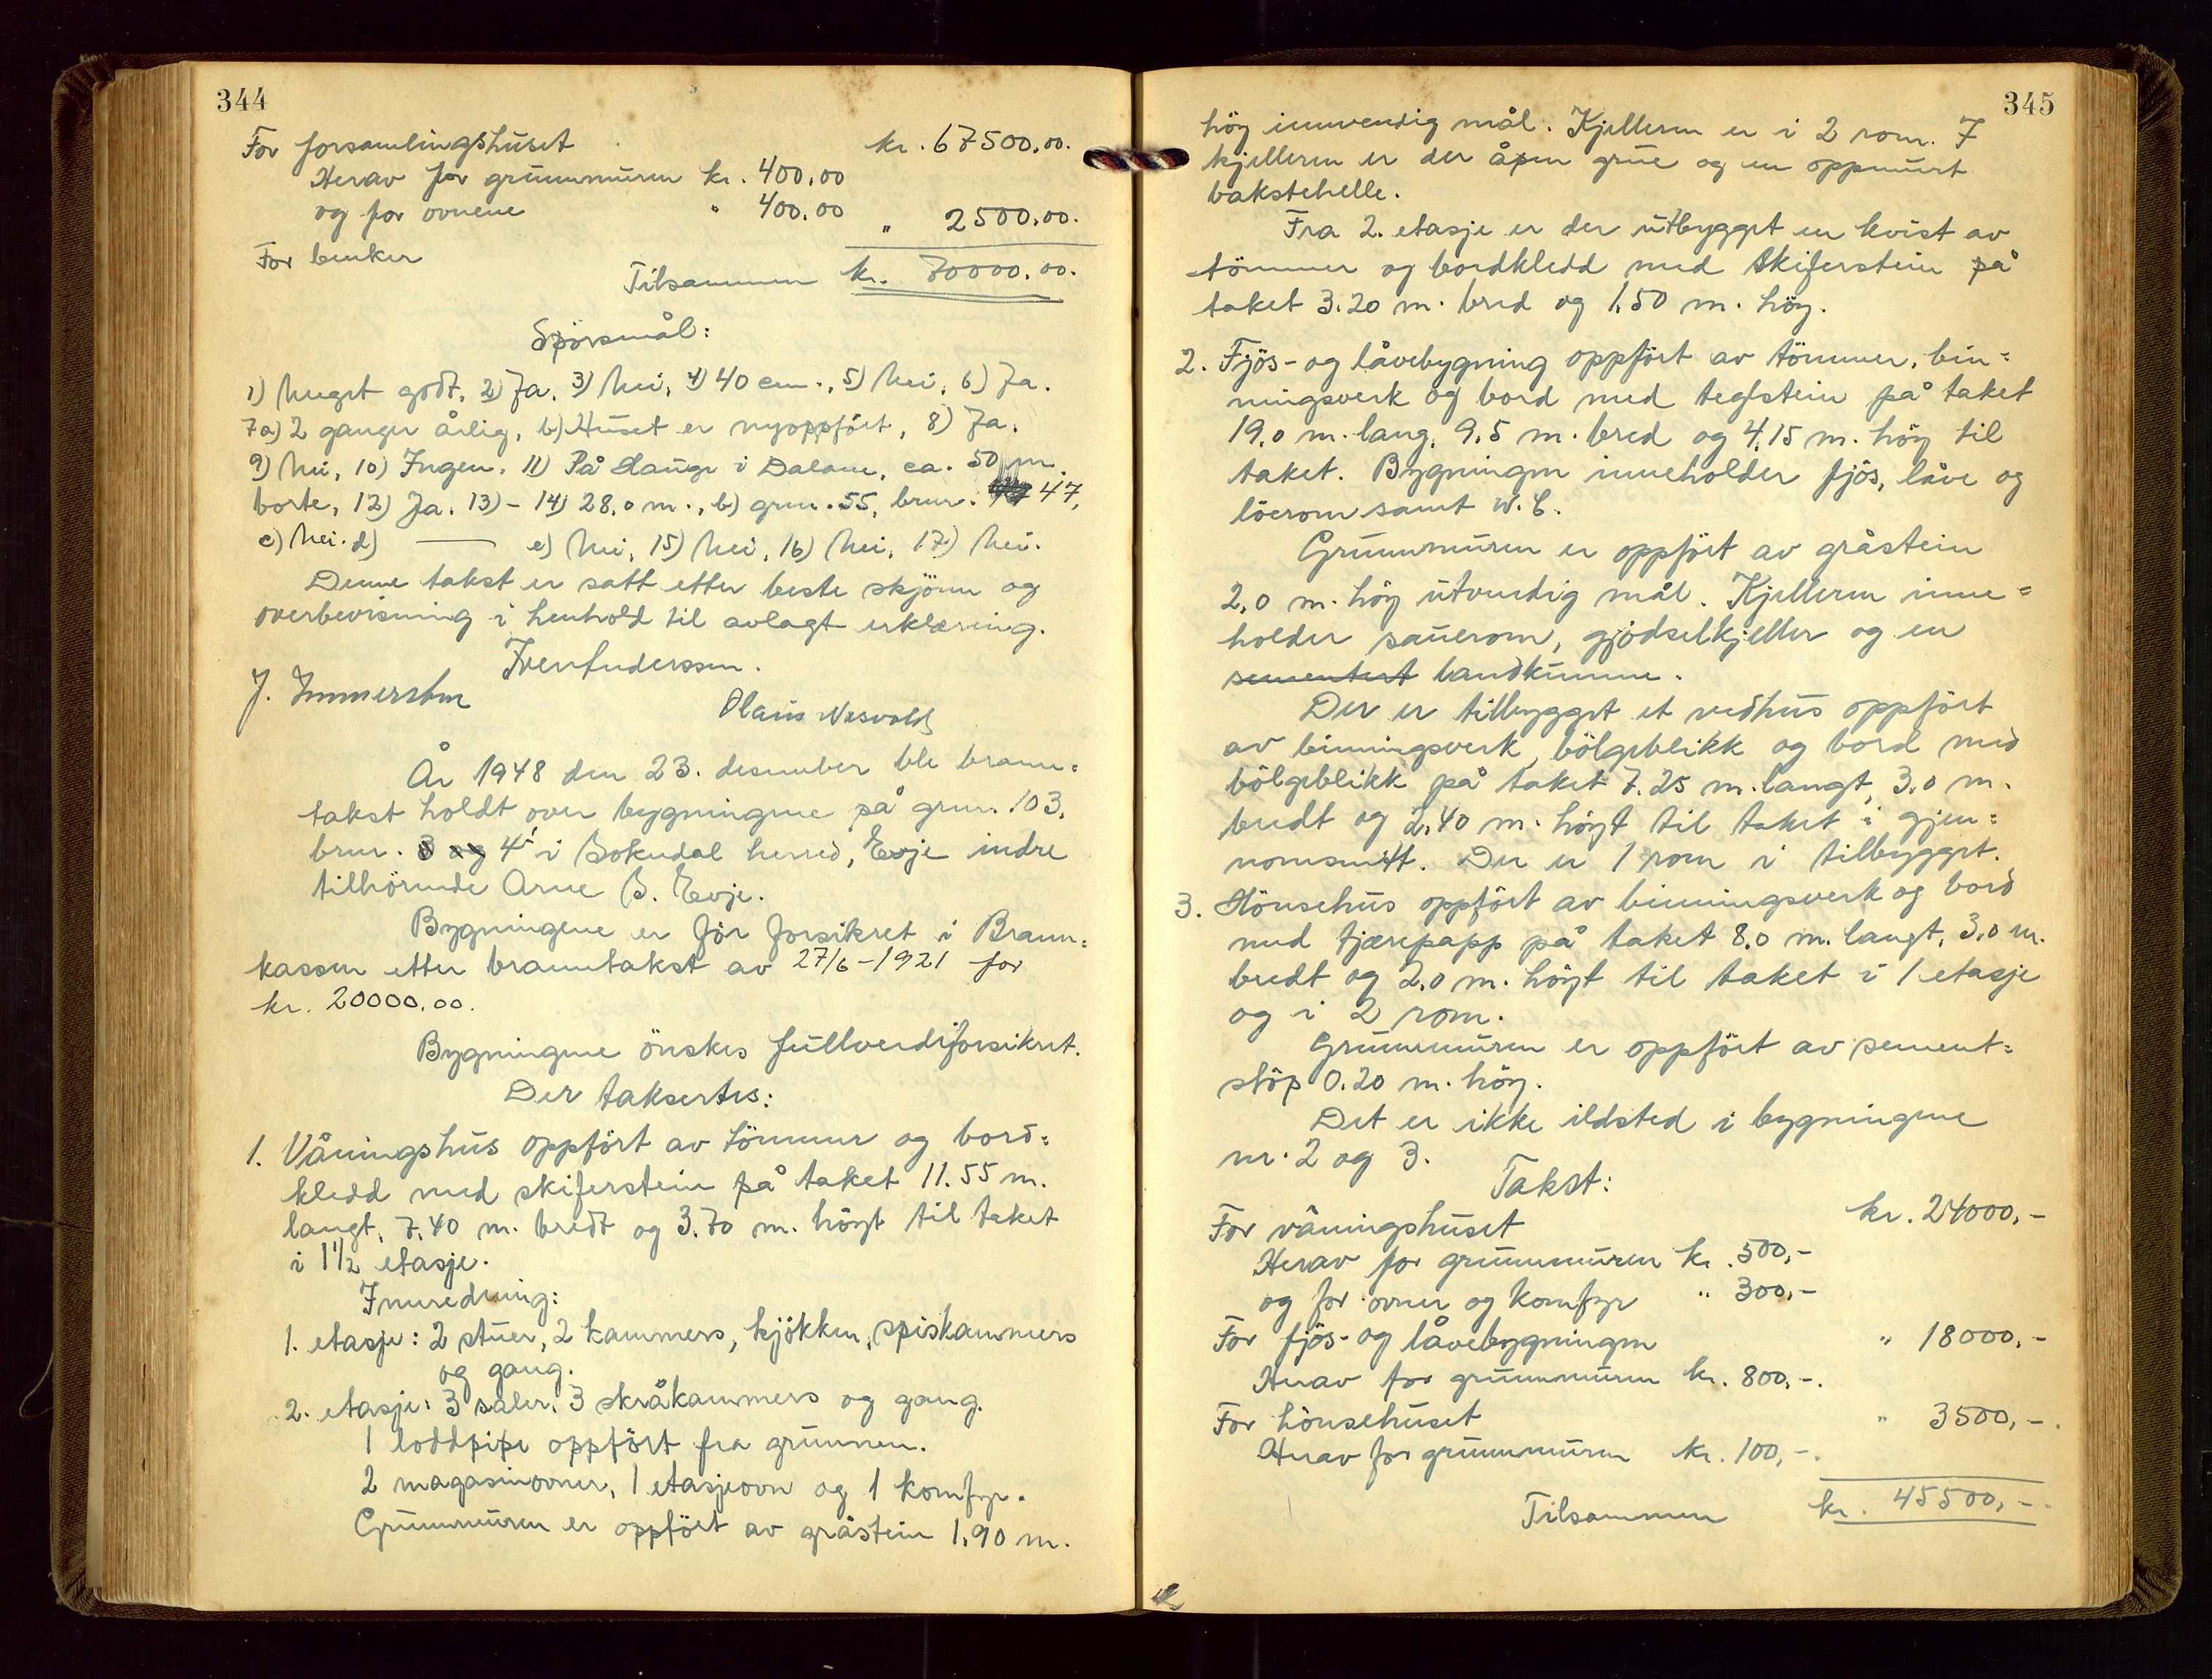 344
For forsamlingshuset kr. 67500,00.
Herav for grunnmuren kr. 400,00
og for ovnene " 400.00
For benker " 2500,00.
Tilsammen kr. 70000,00.
Spörsmål:
1) Meget godt, 2) Ja, 3) Nei, 4) 40 cm., 5) Nei, 6) Ja.
7a) 2 ganger årlig, b) Huset er nyoppfört, 8) Ja.
9) Nei, 10) Ingen. 11) På Hauge i Dalane, ca. 50 m.
borte, 12) Ja. 13) - 14) 28,0 m., b) gnr. 55, bnr. 47,
c) Nei. d) — e) Nei, 15) Nei, 16) Nei, 17) Nei.
Denne takst er satt etter beste skjönn og
overbevisning i henhold til avlagt erklæring.
J.
Olaus
År 1948 den 23. desember ble brann=
takst holdt over bygningene på gnr. 103,
bnr. 3 og 4 i Sokndal herred, Evje indre
tilhörende Arne S. Evje.
Bygningene er för forsikret i Brann=
kassen etter branntakst av 27/6-1921 for
kr. 20000,00.
Bygningene önskes fullverdiforsikret.
Der taksertes:
1. Våningshus oppfört av tömmer og bord=
kledd med skiferstein på taket 11.55 m.
langt, 7,40 m. bredt og 3.70 m. höyt til taket
i 1 1/2 etasje.
Innredning:
1. etasje: 2 stuer, 2 kammers, kjökken, spiskammers
og gang.
2. etasje: 3 saler, 3 skråkammers og gang.
1 loddpipe oppfört fra grunnen.
2 magasinovner, 1 etasjeovn og 1 komfyr.
Grunnmuren er oppfört av gråstein 1,90 m.
345
höy innvendig mål. Kjelleren er i 2 rom. I
kjelleren er der åpen grue og en oppmurt
bakstehelle.
Fra 2. etasje er der utbygget en kvist av
tömmer og bordkledd med skiferstein på
taket 3.20 m. bred og 1,50 m. höy.
2. Fjös- og låvebygning oppfört av tömmer, bin=
ningsverk og bord med teglstein på taket
19,0 m. lang, 9,5 m. bred og 4,15 m. höy til
taket. Bygningen inneholder fjös, låve og
löerom samt W.C.
Grunnmuren er oppfört av gråstein
2,0 m. höy utvendig mål. Kjelleren inne=
holder sauerom, gjödselkjeller og en
sementert landkumme.
Der er tilbygget et vedhus oppfört
av binningsverk, bölgeblikk og bord med
bölgeblikk på taket 7.25 m. langt, 3,0 m.
bredt og 2,40 m. höyt til taket i gjen=
nomsnitt. Der er 1 rom i tilbygget.
3. Hönsehus oppfört av binningsverk og bord
med tjærepapp på taket 8,0 m. langt, 3,0 m.
bredt og 2,0 m. höyt til taket i 1 etasje
og i 2 rom.
Grunnmuren er oppfört av sement=
stöp 0.20 m. höy.
Det er ikke ildsted i bygningene
nr. 2 og 3.
Takst:
For våningshuset kr. 24000,-
Herav for grunnmuren kr. 500,-
og for ovner og komfyr " 300,-
For fjös- og låvebygningen " 18000,-
Herav for grunnmuren kr. 800,-.
For hönsehuset " 3500,-.
Herav for grunnmuren kr. 100,-.
Tilsammen kr. 45500,-.